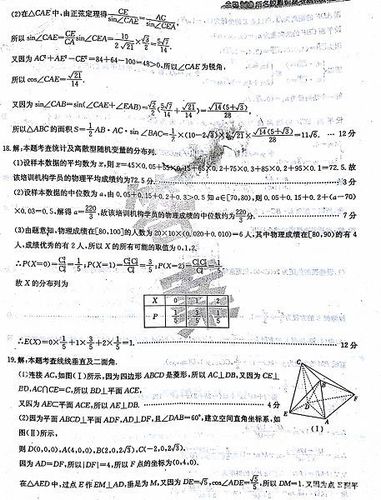 (2)在△CAE中,由正弦定理得CE/sin∠CAE=AC/sin∠CEA,
所以sin∠CAE=CE/CA sin∠CEA=10/2√21×√3/2=5√7/14.
又因为AC²+AE²−CE²=84+64−100=48>0,所以∠CAE为锐角,
所以cos∠CAE=√21/14.
又因为sin∠CAB=sin(∠CAE+∠EAB)=
所以△ABC的面积S=1/2 AB·AC·sin∠BAC=1/2×(10−2√3)×2√21×√14(5+√3)/28=11√6. … 12分
18.解:本题考查统计及离散型随机变量的分布列.
(1)设样本数据的平均数为x,则x=45×0.05+55×0.15+65×0.2+75×0.3+85×0.2+95×0.1=72.5.故
该培训机构学员的物理平均成绩约为72.5分. 3分
(2)设样本数据的中位数为a,由0.05+0.15+0.2+0.3>0.5知a∈[70,80),则0.05+0.15+0.2+(a−70)
×0.03=0.5,解得a=220/3,故该培训机构学员的物理成绩的中位数约为220/3分. 7分
(3)由题意知,物理成绩在[80,100]的人数为20×10×(0.020+0.010)=6人,其中物理成绩在[80,90)的有4
人,成绩优秀的有2人,所以X的所有可能的取值为0,1,2.
∴P(X=0)= =1/5;P(X=1)= =3/5;P(X=2)= =1/5.
故X的分布列为
X 0 1 2
P 1/5 3/5 1/5
∴E(X)=0×1/5+1×3/5+2×1/5=1. 12分
19.解:本题考查线线垂直及二面角.
(1)连接AC,如图(Ⅰ)所示,因为四边形ABCD是菱形,所以AC⊥DB,又因为CE⊥
BD,AC∩CE=C,所以BD⊥平面ACE,
又因为AEC平面ACE,所以AE⊥DB. 4分
(2)因为平面ABCD⊥平面ADF,AD⊥DF,且∠DAB=60°,建立空间直角坐标系,如
图(Ⅱ)所示,
则D(0,0,0),A(4,0,0),B(2,0,2√3),C(−2,0,2√3).
因为AD=DF,所以|DF|=4,所以F点的坐标为(0,4,0).
在△AED中,过点E作EM⊥AD,垂足为M,又因为DE=√5,cos∠ADE=√5/5,所以DM=1.又因为点E
C
B
D
A
E
F
(Ⅰ)